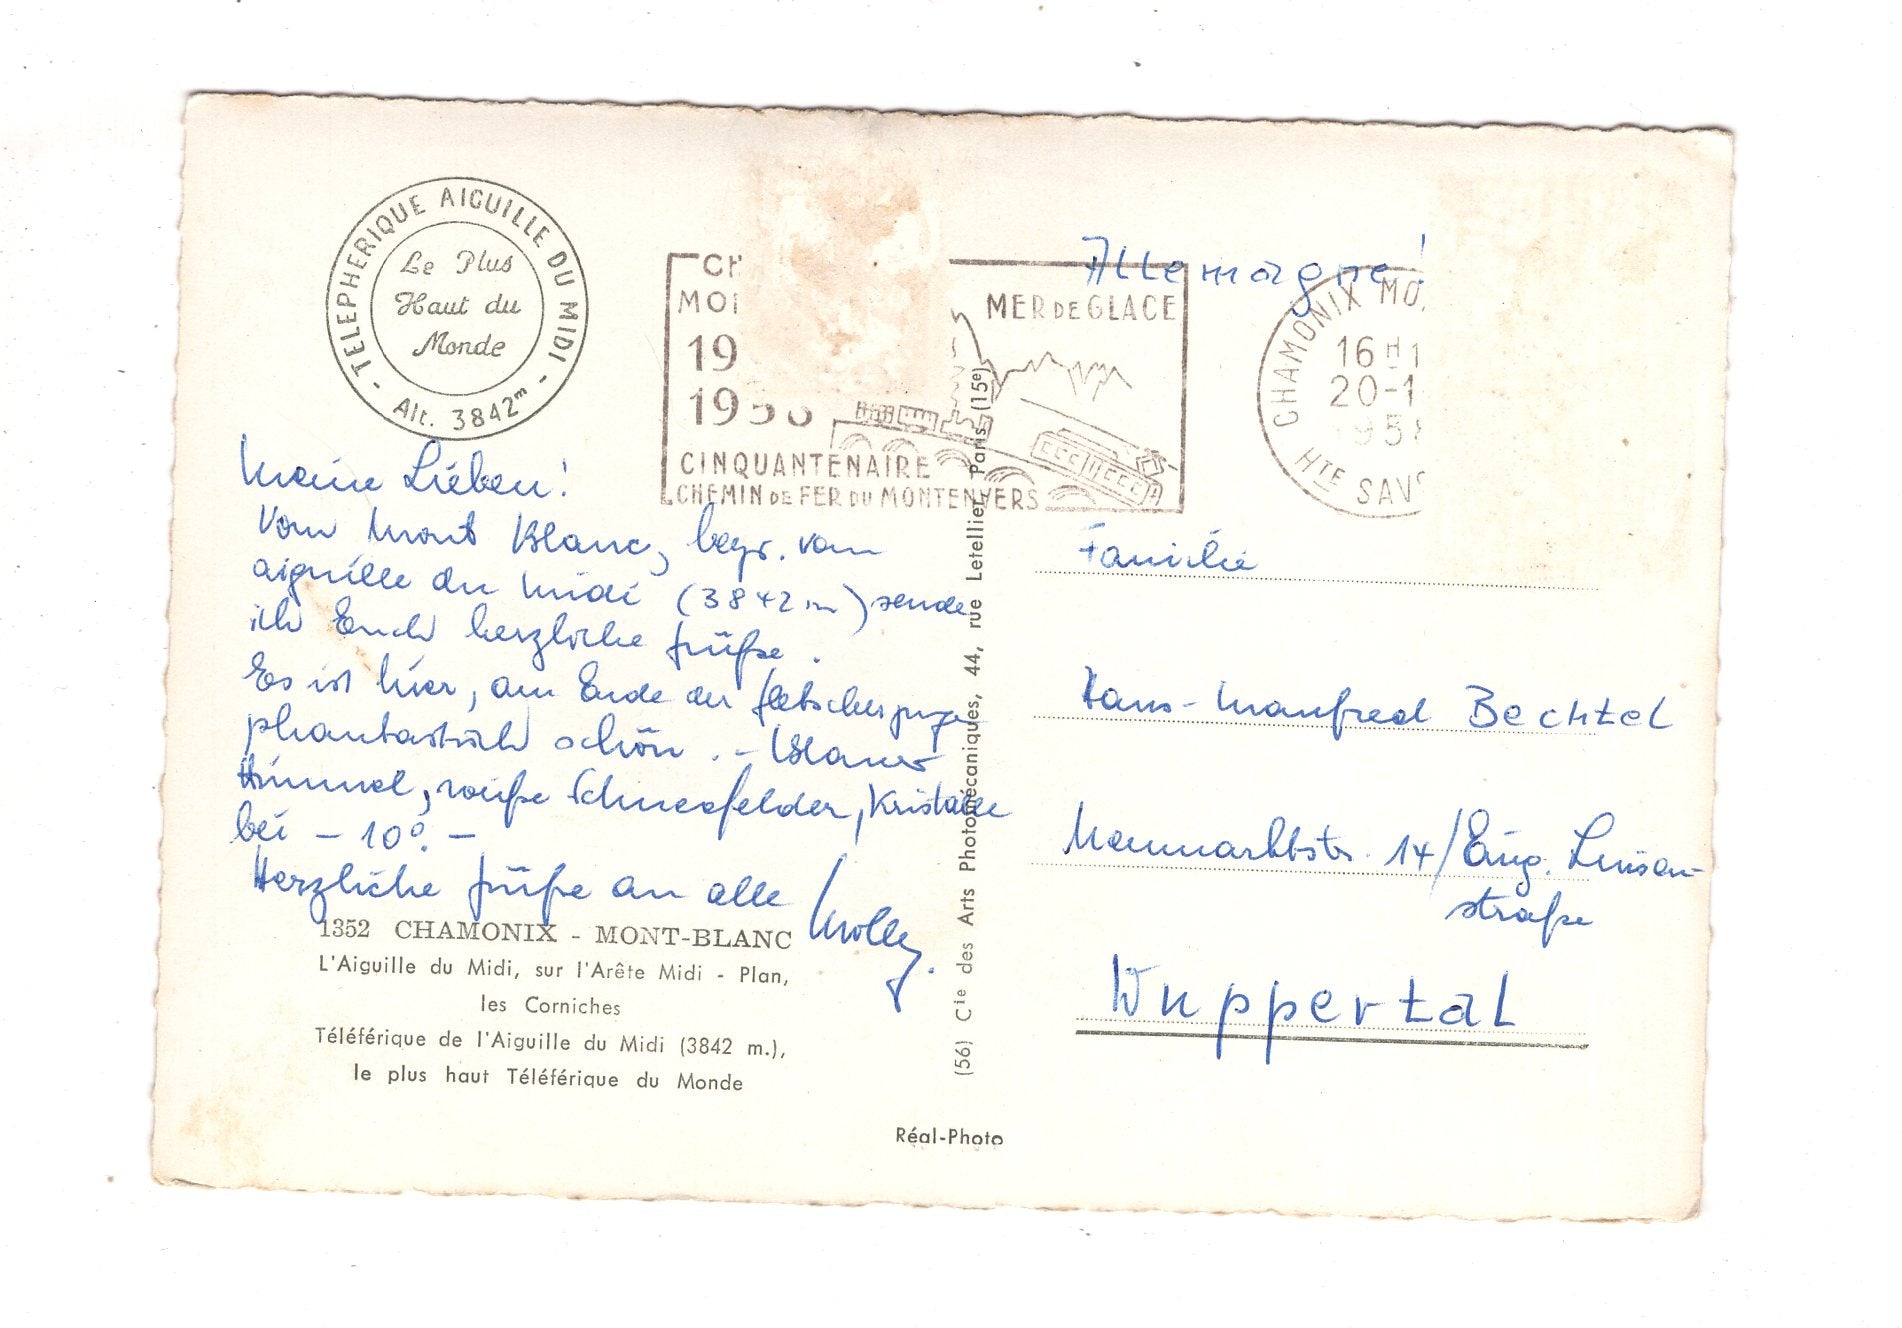 TELEPHERIQUE AIGUILLE DU MIDI -
Le Plus
Haut du
Monde
Alt. 3842m -
MER DE GLACE
19
1958
CINQUANTENAIRE
CHEMIN DE FER DU MONTENVERS
CHAMONIX MO
16 H 1
20-1
1958
HTE SAV
Allemagne!
Meine Lieben!
Vom Mont Blanc, bezw. vom
aiguille du midi (3842 m) sende
ich Euch herzliche Grüße.
Es ist hier, am Ende der
phantastisch schön. - Blauer
Himmel, weiße Schneefelder, Kristalle
bei - 10°. -
Herzliche Grüße an alle
Molly.
1352 CHAMONIX - MONT-BLANC
L'Aiguille du Midi, sur l'Arête Midi - Plan,
les Corniches
Téléférique de l'Aiguille du Midi (3842 m.),
le plus haut Téléférique du Monde
(56) Cie des Arts Photomécaniques, 44, rue Letellier, Paris (15e)
Réal-Photo
Familie
Hans-Manfred Bechtel
Neumarktstr. 14/Eing. Luisen-
straße
Wuppertal